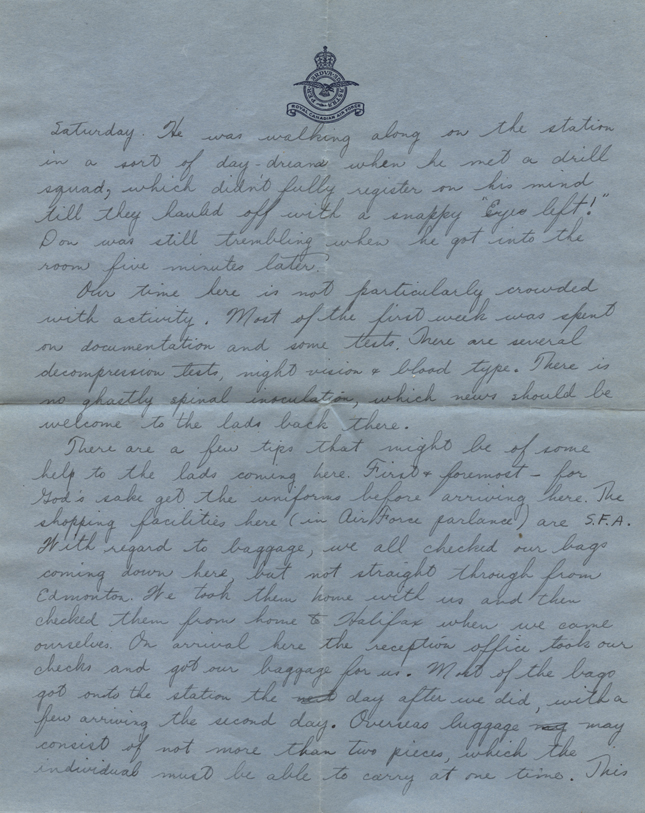 PER ARDUA AD ASTRA
ROYAL CANADIAN AIR FORCE
Saturday. He was walking along on the station
in a sort of day-dream when he met a drill
squad, which didn't fully register on his mind
till they hauled off with a snappy "Eyes left!"
Don was still trembling when he got into the
room five minutes later.
Our time here is not particularly crowded
with activity. Most of the first week was spent
on documentation and some tests. There are several
decompression tests, night vision & blood type. There is
no ghastly spinal inoculation, which news should be
welcome to the lads back there.
There are a few tips that might be of some
help to the lads coming here. First & foremost - for
God's sake get the uniforms before arriving here. The
shopping facilities here (in Air Force parlance) are S.F.A.
With regard to baggage, we all checked our bags
coming down here, but not straight through from
Edmonton. We took them home with us and then
checked them from home to Halifax when we came
ourselves. On arrival here the reception office took our
checks and got our baggage for us. Most of the bags
got onto the station the day after we did, with a
few arriving the second day. Overseas luggage may
consist of not more than two pieces, which the
individual must be able to carry at one time. This